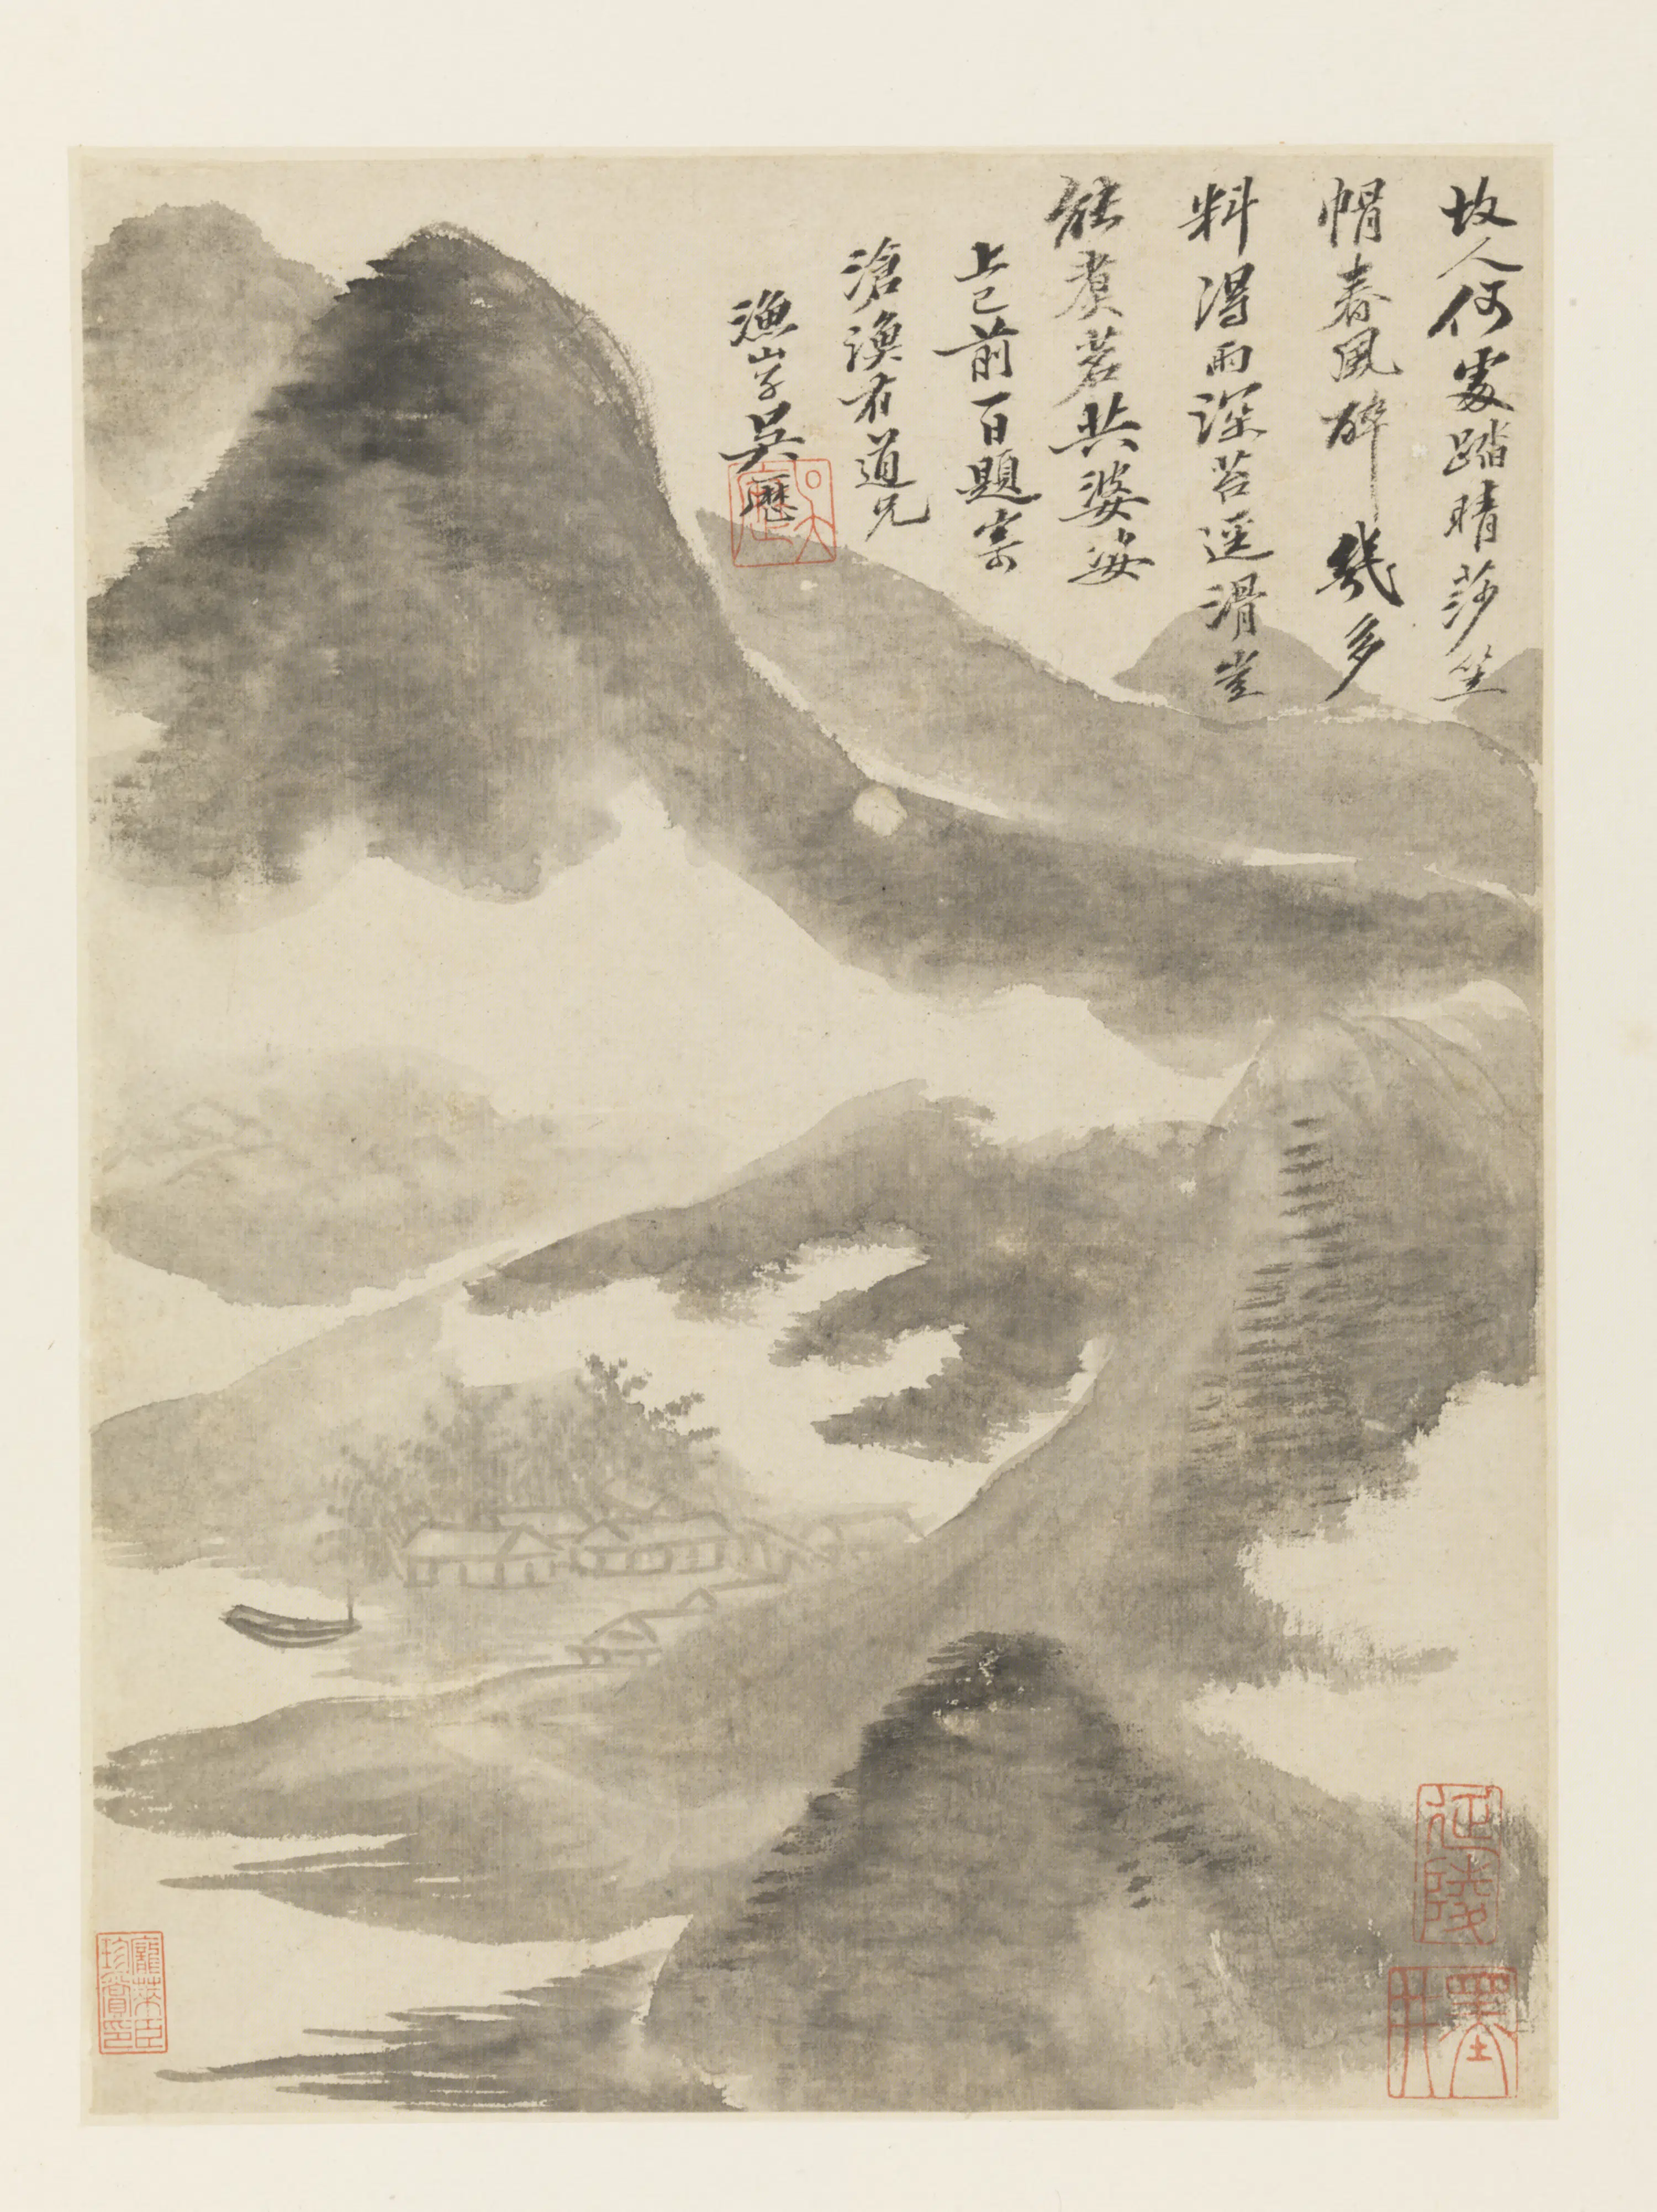 故人何處踏晴莎坐
帽春風醉幾多
料得雨深苔逕滑豈
能煮茗共婆娑
上巳前一日題寄
滄有道兄
漁山子吳歷
延陵
墨井
龐萊臣珍賞印